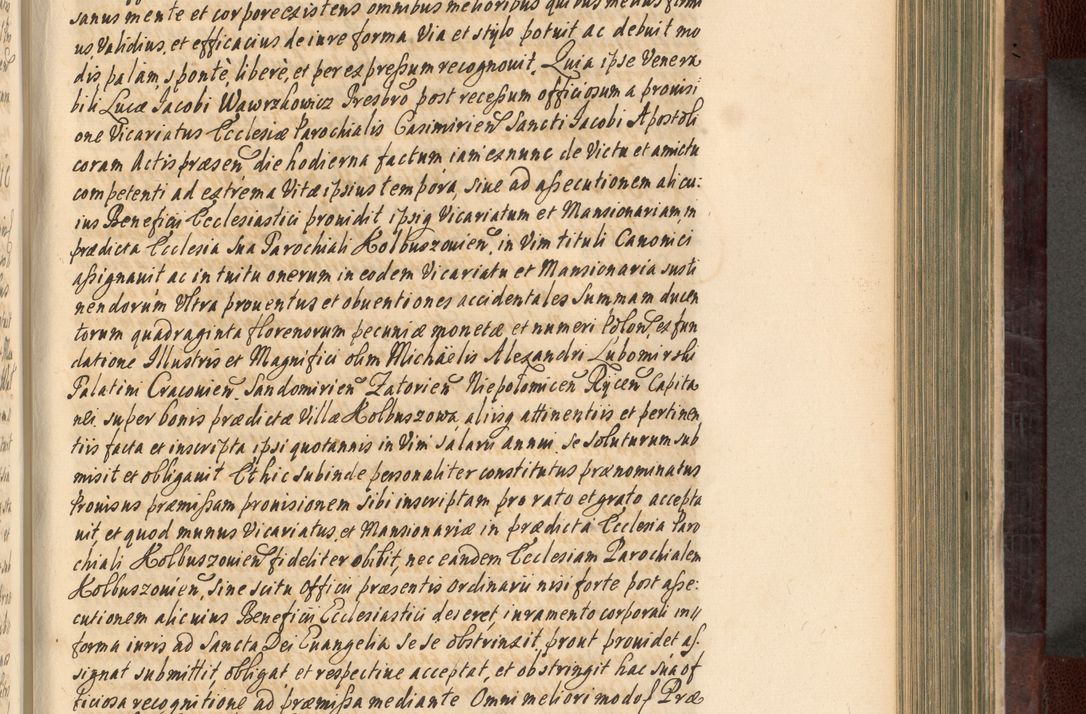 sanus mente et corpore existens omnibus melioribus quibus melius firmi
us Validius, et efficacius de iure forma Via et stylo potuit ac debuit mo
dis palàm, spontè, liberè, et per expressum recognouit. Quia ipse Venera
bili Lucæ Jacobi Wawrzkowicz Presbro post recessum officiosum a prouisi
one Vicariatus Ecclesiæ Parochialis Casimirien Sancti Jacobi Apostoli
coram Actis præsen die hodierna factum iam ex nunc de Victu et amictu
competenti ad extrema Vitæ ipsius tempora, siue ad assecutionem alicu:
ius Beneficij Ecclesiastici prouidit ipsiq Vicariatum et Mansionariam in
prædicta Ecclesia sua Parochiali Kolbuszouien, in Vim tituli Canonici
assignauit ac intuitu onerum in eodem Vicariatu et Mansionaria susti
nendorum Vltra prouentus et obuentiones accidentales summam ducen
torum quadraginta florenorum pecuniæ monetæ et numeri Polon, ex fun
datione Illustris et Magnifici olim Michäelis Alexandri Lubomirski
Palatini Cracouien, Sandomirien Zatorien Niepołomicen Rycen Capita
nei super bonis prædictæ Villæ Kolbuszowa, alijsq attinentiis et pertinen
tiis facta et inscripta ipsi quotannis in Vim salarii annui se soluturum sub
misit et obligauit Et hic subinde personaliter constitutus prænominatus
Prouisus præmissam prouisionem sibi inscriptam pro rato et grato accepta
uit, et quod munus Vicariatus, et Mansionariæ in prædicta Ecclesia Paro
chiali Kolbuszouien fideliter obibit, nec eandem Ecclesiam Parochialem
Kolbuszouien, sine scitu Officii præsentis Ordinarii nisi forte post asse:
cutionem alicuius Beneficii Ecclesiastici deseret, iuramento corporali in//
forma iuris ad Sancta Dei Euangelia se se obstrinxit, prout prouidet as,
signat submittit, obligat et respectiue acceptat, et obstringit hac sua of
ficiosa recognitione ad præmissa mediante Omni meliori modo Præ